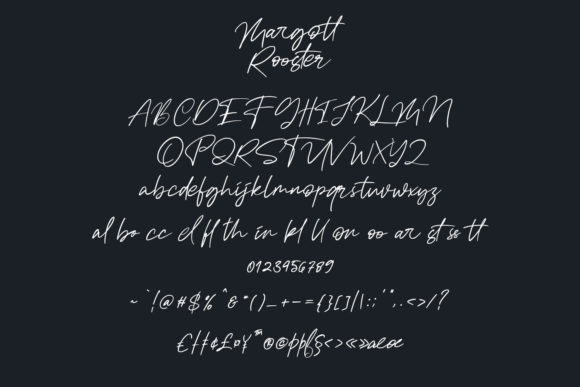 Margott
Rooster
ABCDEFGHIJKLMN
OPQRSTUVWXYZ
abcdefghijklmnopqrstuvwxyz
al bo cc el fl th in kl ll on oo ar st ss tt
0123456789
~`!@#$%^&*()_+-={}[]/|\:;'",.<>/?